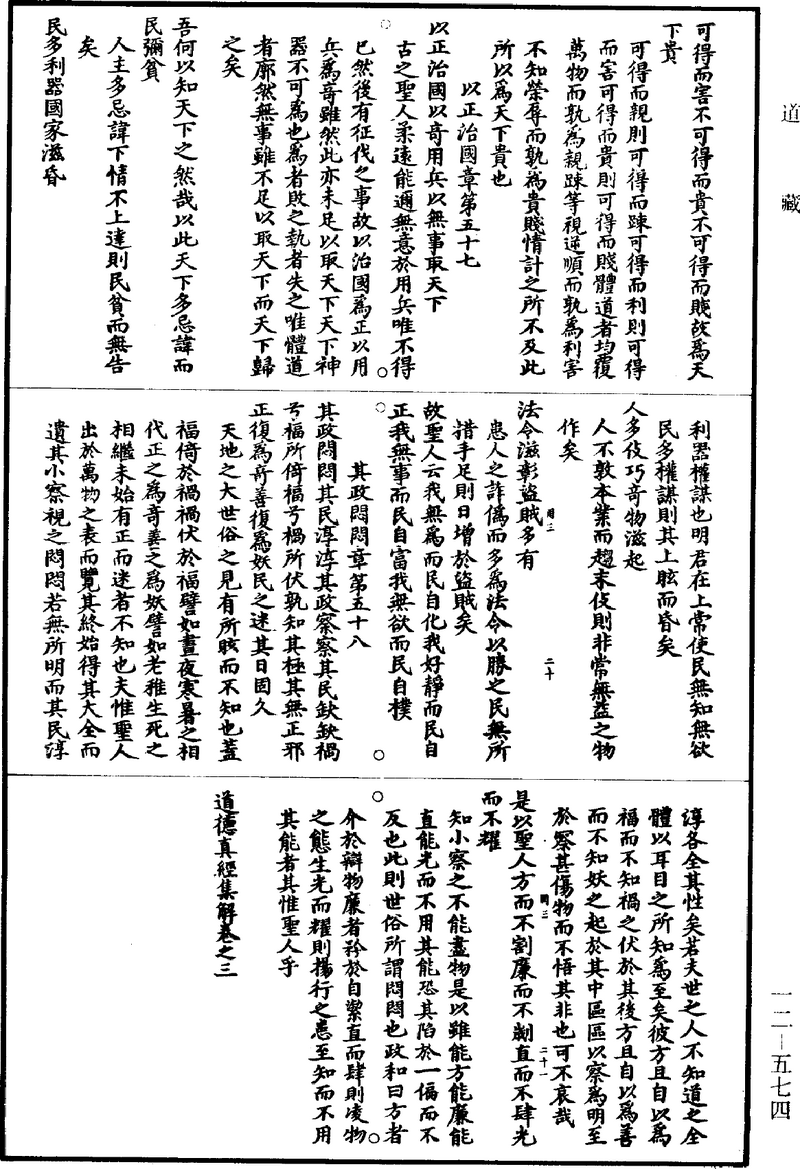 道藏
可得而害不可得而貴不可得而賤故為天
下貴
可得而親則可得而踈可得而利則可得
而害可得而貴則可得而賤體道者均覆
萬物而孰為親踈等視逆順而孰為利害
不知榮辱而孰為貴賤情計之所不及此
所以為天下貴也
以正治國章第五十七
以正治國以奇用兵以無事取天下
古之聖人柔遠能邇無意於用兵唯不得
已然後有征伐之事故以治國為正以用
兵為奇雖然此亦未足以取天下天下神
器不可為也為者敗之執者失之唯體道
者廓然無事雖不足以取天下而天下歸
之矣
吾何以知天下之然哉以此天下多忌諱而
民彌貧
人主多忌諱下情不上達則民貧而無告
矣
民多利器國家滋昏
利器權謀也明君在上常使民無知無欲
民多權謀則其上眩而昏矣
人多伎巧奇物滋起
人不敦本業而趨末伎則非常無益之物
作矣
法令滋彰盜賊多有
患人之詐偽而多為法令以勝之民無所
措手足則日增於盜賊矣
故聖人云我無為而民自化我好靜而民自
正我無事而民自富我無欲而民自樸
其政悶悶章第五十八
其政悶悶其民淳淳其政察察其民缺缺禍
兮福所倚福兮禍所伏孰知其極其無正邪
正復為奇善復為妖民之迷其日固久
天地之大世俗之見有所眩而不知也蓋
福倚於禍禍伏於福譬如晝夜寒暑之相
代正之為奇善之為妖譬如老稚生死之
相繼未始有正而迷者不知也夫惟聖人
出於萬物之表而覽其終始得其大全而
遺其小察視之悶悶若無所明而其民淳
淳各全其性矣若夫世之人不知道之全
體以耳目之所知為至矣彼方且自以為
福而不知禍之伏於其後方且自以為善
而不知妖之起於其中區區以察為明至
於察甚傷物而不悟其非也可不哀哉
是以聖人方而不割廉而不劌直而不肆光
而不耀
知小察之不能盡物是以雖能方能廉能
直能光而不用其能恐其陷於一偏而不
反也此則世俗所謂悶悶也政和曰方者
介於辯物廉者矜於自潔直而肆則凌物
之態生光而耀則揚行之患至知而不用
其能者其惟聖人乎
道德真經集解卷之三
一二—五七四